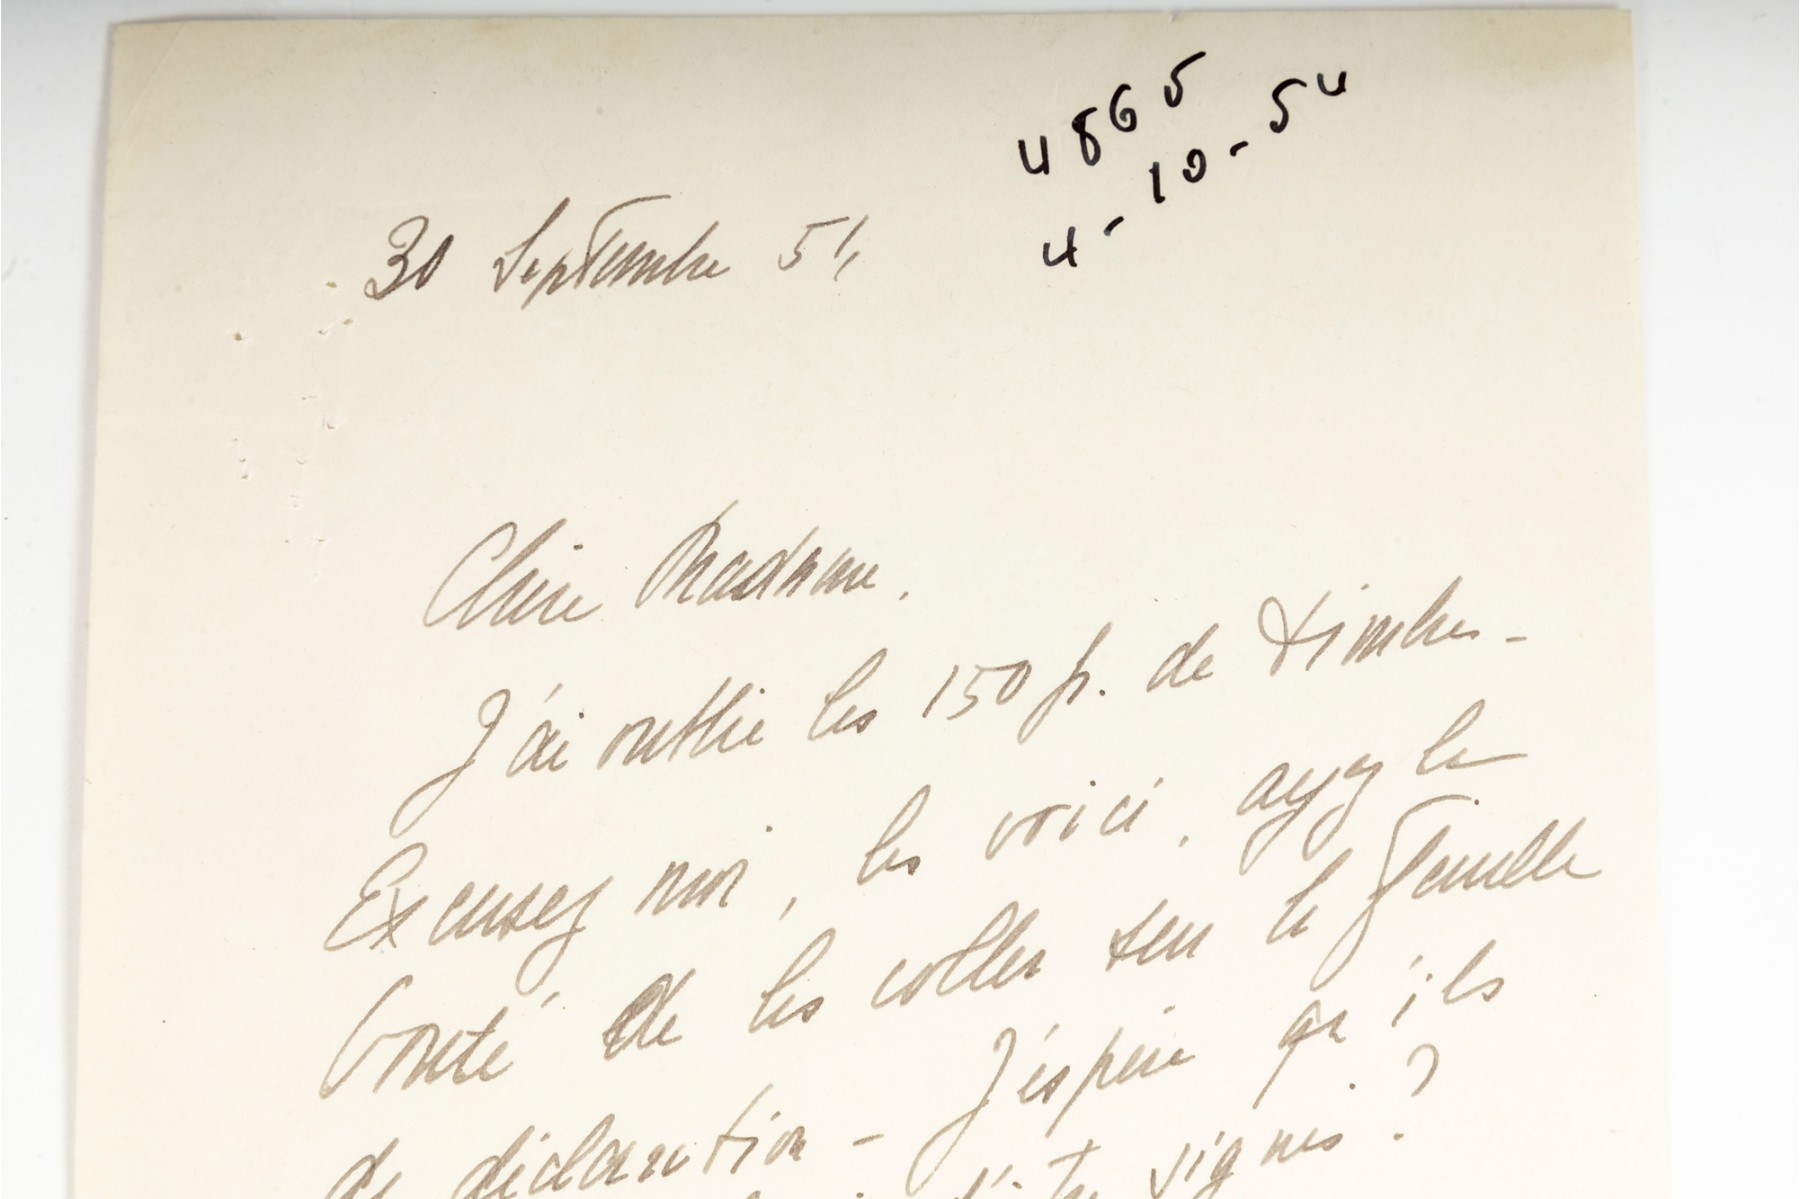 4865
4-10-54
30 Septembre 54
Chère Madame,
J'ai oublié les 150 fr. de timbres -
Excusez moi, les voici, ayez la
bonté de les coller sur la feuille
de déclaration - J'éspère qu'ils
d'être signés. ?